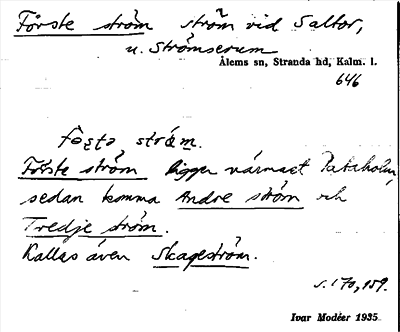 Förste ström ström vid Saltor,
u. Strömserum
Ålems sn, Stranda hd, Kalm. l.
646
föstə strám.
Förste ström ligger närmast Pataholm,
sedan komma Andre ström och
Tredje ström.
Kallas även Skageström.
s. 170, 159.
Ivar Modéer 1935